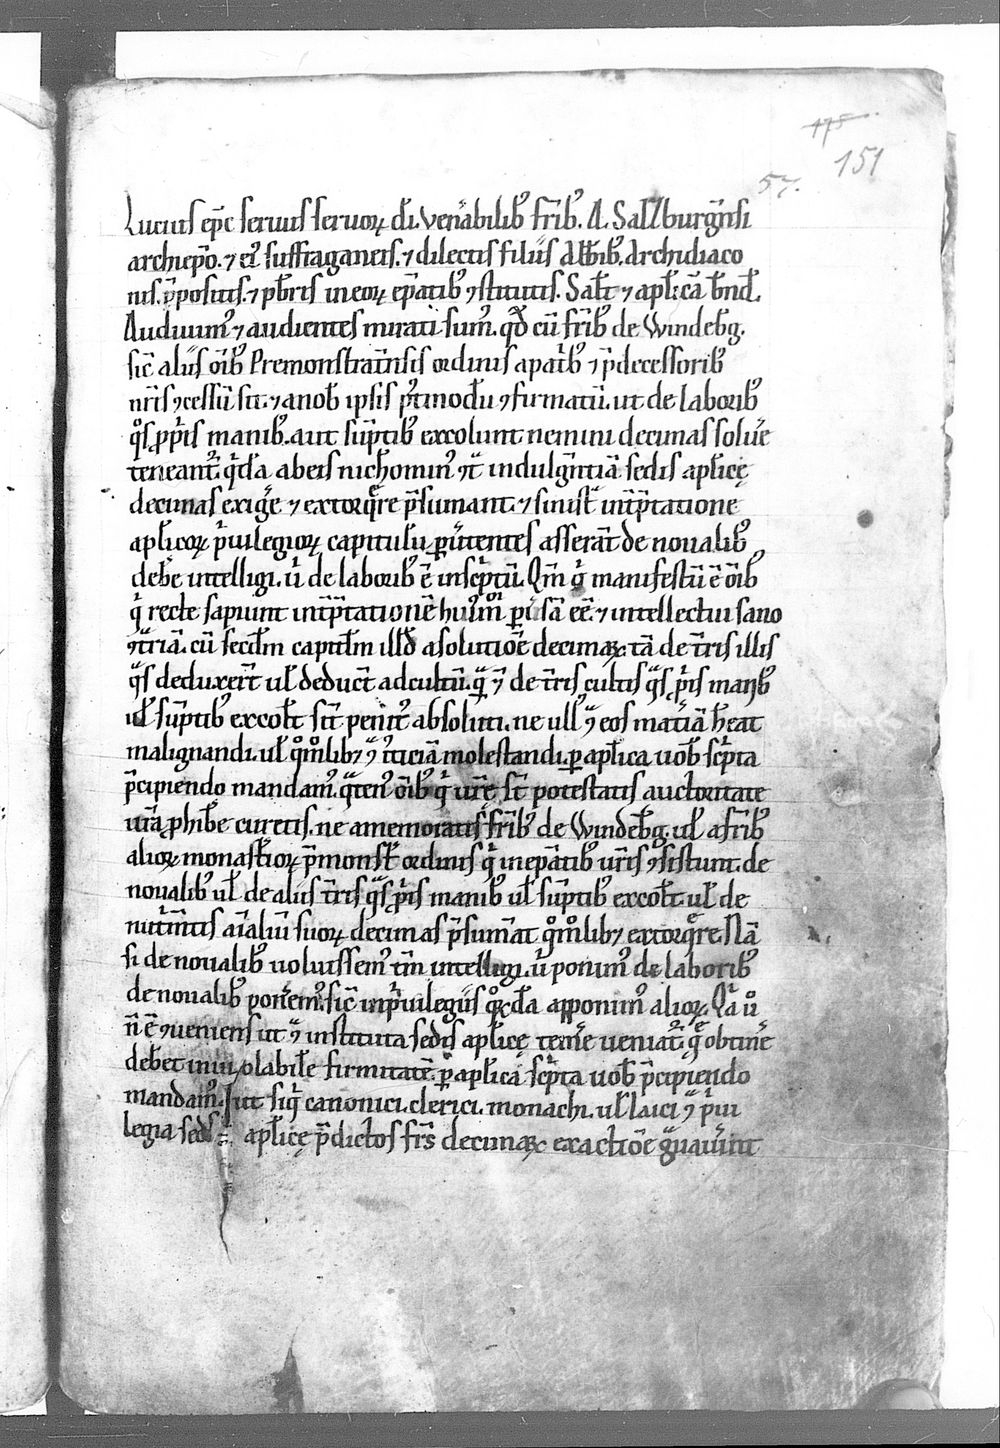 175
151
57.
Luciuſ ep̄c ſeruuſ ſeruoꝝ d̄i. ven̄abilib᷒ fr̄ib᷒. A. Salzburgn̄ſi
archiep̄o. ⁊ ei᷒ ſuffraganeiſ. ⁊ dilectiſ filiiſ Abb̄ib᷒. Archidiaco
niſ. p̄poſitiſ. ⁊ pb̄riſ in eoꝝ ep̄atib᷒ ꝯſtitutiſ. Sal̄t ⁊ apl̄icā bn̄d̄.
Audiuim᷒ ⁊ audienteſ mirati ſum᷒. qd̄ cū fr̄ib᷒ de Windeb̄g.
ſic̄ aliiſ ōib᷒ Premonſtrat̄nſiſ ordiniſ a pat̄b᷒ ⁊ p̄deceſſorib᷒
nr̄iſ ꝯceſſū ſit. ⁊ a nob̄ ipſiſ p᷒tmodū ꝯfirmatū. ut de laborib᷒
q̊ſ ꝓp̄iſ manib᷒. aut ſūptib᷒ excolunt nemini decimaſ ſolue᷑
teneant᷑. q̇dā ab eiſ nichomin᷒ ꝯt̄ indulgn̄tiā ſediſ apl̄icę
decimaſ exige᷑ ⁊ extorq̄re p̄ſumant. ⁊ ſiniſt̄ int̄p̄tatione
apl̄icoꝝ ṗuilegioꝝ capitulū ꝑu᷑tenteſ aſſerāt de noualib᷒
debe᷑ intelligi. u̇ de laborib᷒ ē inſc̄ptū. Qm̄ g̊ manifeſtū ē ōib᷒
q̇ recte ſapiunt int̄p̄tationē hui᷒m̊ ꝑu᷑ſā eē. ⁊ intellectui ſano
ꝯt̄riā. cū ſecd̄m capitl̄m illd̄ a ſolutiōe decimaꝝ. tā de t̄riſ illiſ
q̄ſ deduxer̄t ul̄ deduc̄t ad cultū. q̄ ⁊̄ de t̄riſ cultiſ q̄ſ ꝓṗiſ manib᷒
ul̄ ſūptib᷒ excol̄t ſīt penit᷒ abſoluti. ne ull᷒ ꝯ᷑ eoſ mat̄iā h̄eat
malignandi. ul̄ q̊m̊lib᷑ ꝯ᷑ iuſticiā moleſtandi. ꝑ apl̄ica uob̄ ſc̄pta
p̄cipiendo mandam᷒. q̄ten᷒ ōib᷒ q̇ ur̄ę ſt̄ poteſtatiſ auctoritate
ur̄a ꝓhibe᷑ curetiſ. ne a memoratiſ fr̄ib᷒ de Windeb̄g. ul̄ a fr̄ib᷒
alioꝝ monaſt̄ioꝝ p̄monſt̄ ordiniſ q̇ in ep̄atib᷒ ur̄iſ ꝯſiſtunt. de
noualib᷒ ul̄ de aliiſ t̄riſ q̄ſ ꝓṗiſ manib᷒ ul̄ ſūptib᷒ excol̄t. ul̄ de
nut̄m̄tiſ aīaliū ſuoꝝ decimaſ p̄ſumāt q̊m̊lib᷑ extorq̄re. Nā
ſi de noualib᷒ uoluiſſem᷒ tm̄ intelligi. u̇ ponim᷒ de laborib᷒
de noualib᷒ poneem᷒. ſic̄ in ṗuilegiiſ q̊ꝛdā apponim᷒ alioꝝ. Qa u̇̊
n̄ ē ꝯuenienſ ut ꝯ᷑ inſtituta ſediſ apl̄icę teme᷑ ueniat᷑. q̄ obtine᷑
debet inuiolabile᷑ firmitatē. ꝑ apl̄icā ſc̄pta uob̄ p̄cipiendo
mandam᷒. ut ſiq̇ canonici. clerici. monachi. ul̄ laici ꝯ᷑ ṗui
legia ſediſ apl̄icę p̄dictoſ fr̄ſ decimaꝝ exactiōe g̊uauint